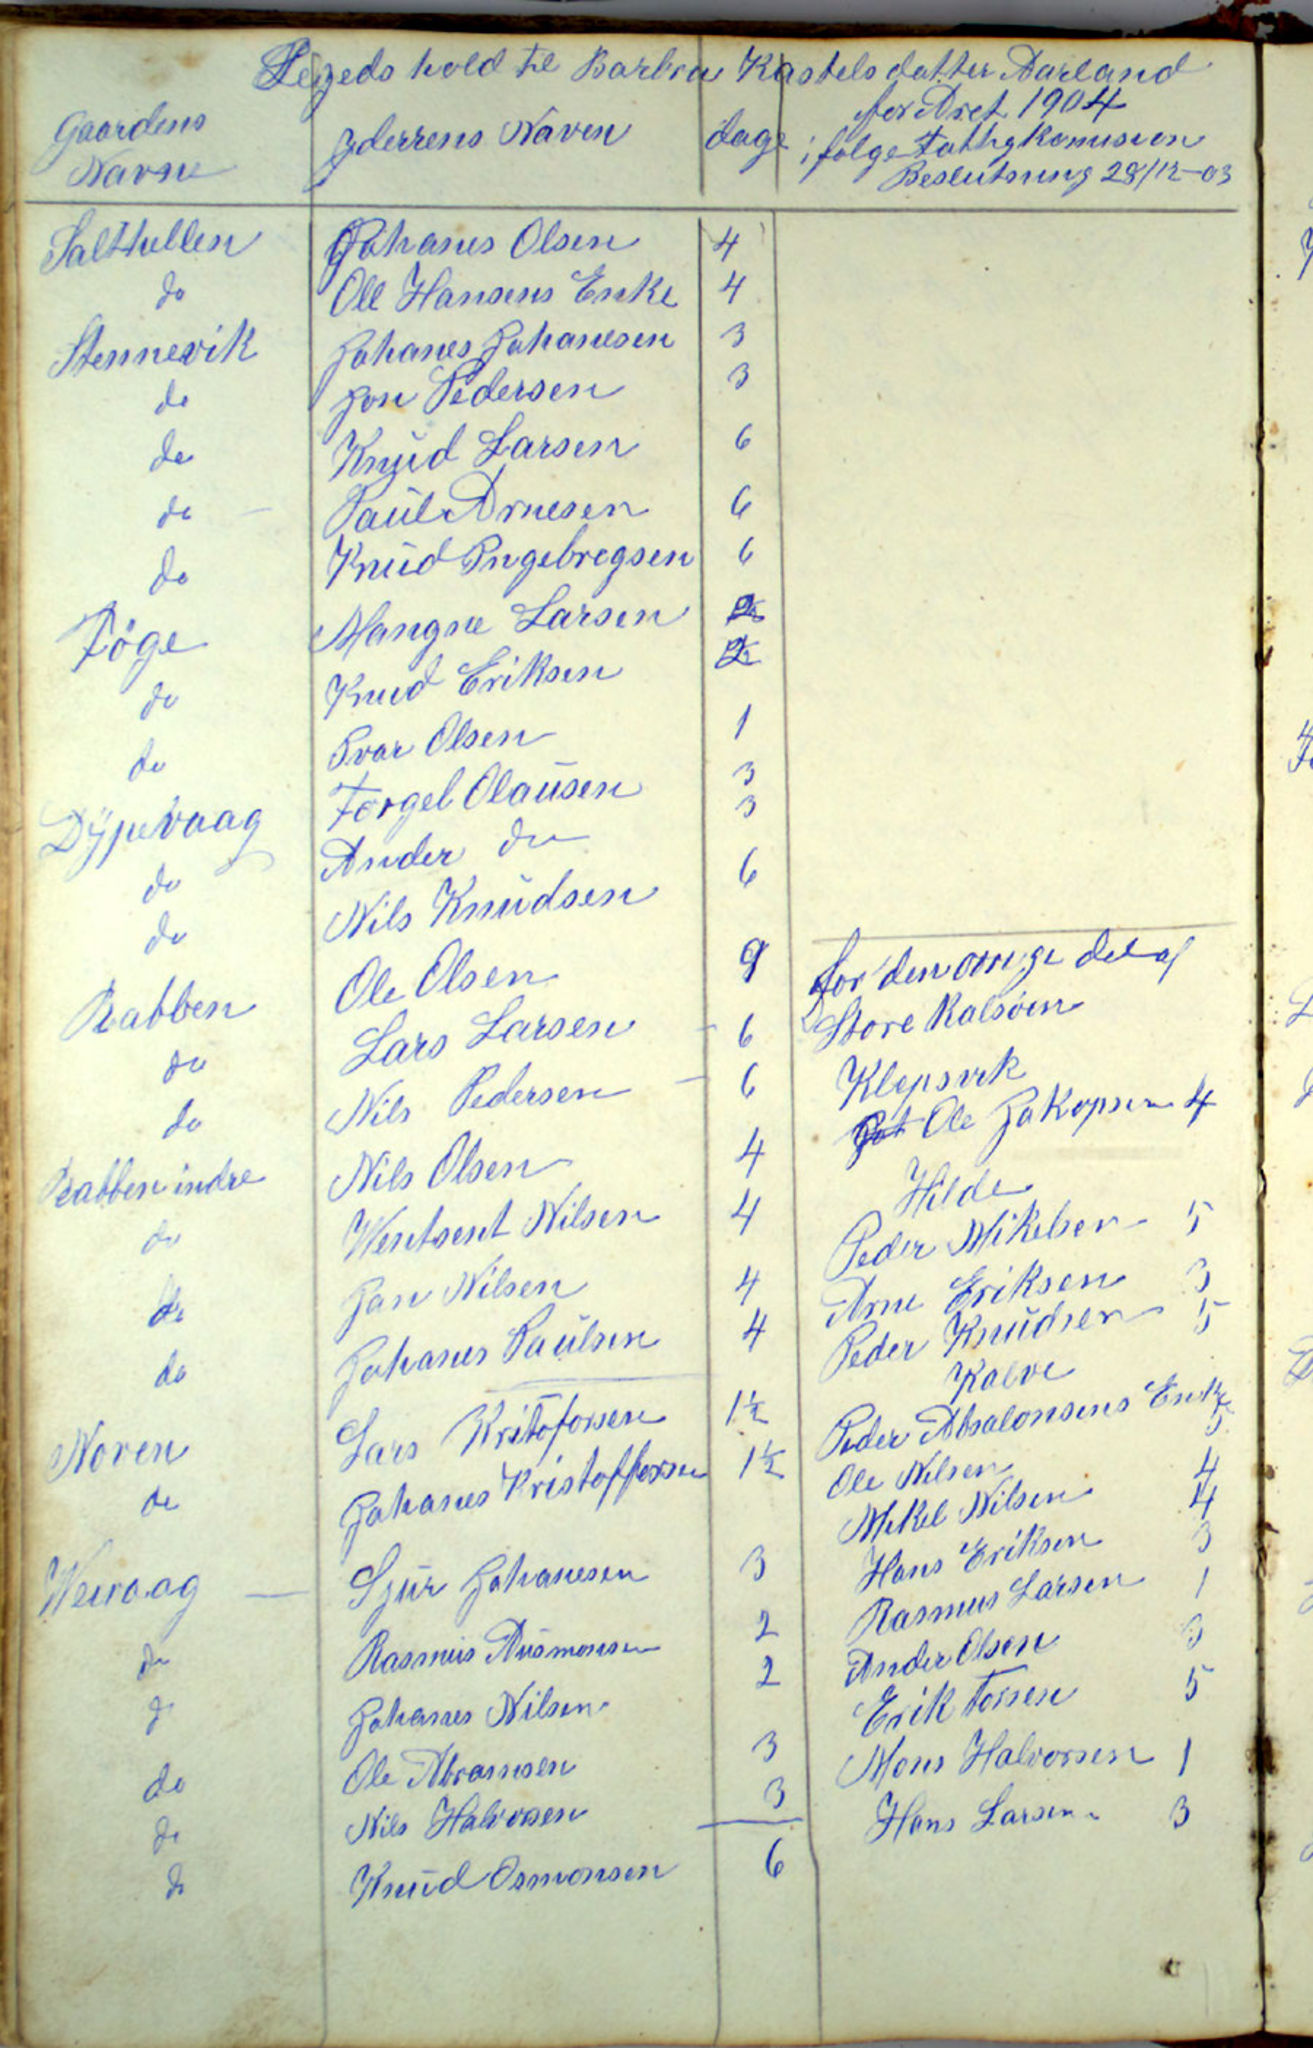 Legeds hold til Barbra Kastelsdatter Aarland
for Aret 1904
i følge Fattigkomision
Beslutning 28/12-03
Gaardens Navne | Yderrens Naven | dage
Salthellen | Johanes Olsen | 4
do | Ole Hansens Enke | 4
Stennevik | Johanes Johanesen | 3
do | Jon Pedersen | 3
do | Knud Larsen | 6
do | Paul Arnesen | 6
do | Knud Ingebregsen | 6
Töge | Mangne Larsen
do | Knud Eriksen
do | Ivar Olsen | 1
Dÿpevaag | Torgel Olausen | 3
do | Ander do | 3
do | Nils Knudsen | 6
Rabben | Ole Olsen | 9
do | Lars Larsen | 6
do | Nils Pedersen | 6
Rabben indre | Nils Olsen | 4
do | Wentsent Nilsen | 4
do | Jan Nilsen | 4
do | Johanes Paulsen | 4
Noren | Lars Kristofersen | 1½
do | Johanes Kristoffersen | 1½
Weivaag | Sjur Johanesen | 3
do | Rasmus Rasmonsen | 2
do | Johanes Nilsen | 2
do | Ole Abramsen | 3
do | Nils Halvorsen | 3
do | Knud Osmonsen | 6
for den ovrige del af
Store Kalsöen
Klepsvik
Ole Jakopsen 4
Hilde
Peder Mikelsen 5
Arne Eriksen 3
Peder Knudsen 5
Kalve
Peder Absalonsens Enke 5
Ole Nilsen 4
Mikel Nilsen 4
Hans Eriksen 3
Rasmus Larsen 1
Ander Olsen 3
Erik Torsen 5
Mons Halvorsen 1
Hans Larsen 3